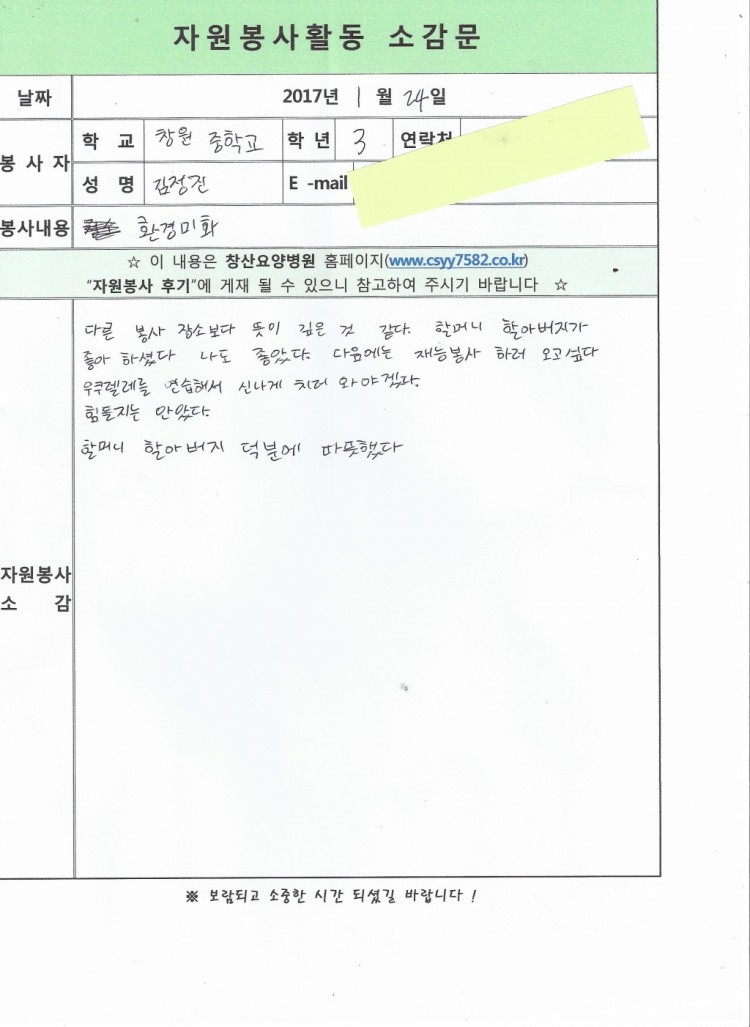 자원봉사활동 소감문
날짜 2017년 1 월 24일
봉사자 학교 창원 중학교 학년 3 연락처
성명 김정진 E-mail
봉사내용 환경미화
☆ 이 내용은 창산요양병원 홈페이지(www.csyy7582.co.kr)
"자원봉사 후기"에 게재 될 수 있으니 참고하여 주시기 바랍니다 ☆
다른 봉사 장소보다 뜻이 깊은 것 같다. 할머니 할아버지가
좋아 하셨다 나도 좋았다. 다음에는 재능봉사 하러 오고싶다
우쿠렐레를 연습해서 신나게 치러 와야겠다.
힘들지는 안았다.
할머니 할아버지 덕분에 따뜻했다
자원봉사
소 감
※ 보람되고 소중한 시간 되셨길 바랍니다 !